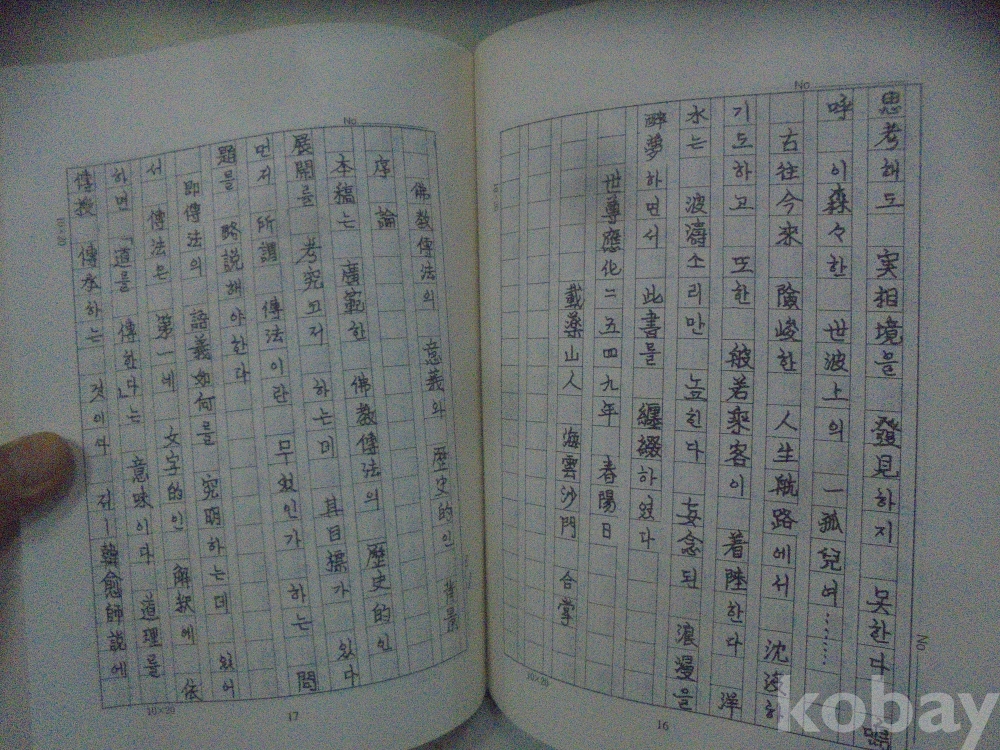 思考해도 実相境을 發見하지 못한다 嗚
呼 이 森々한 世波上의 一孤兒여……
古往今来 險峻한 人生航路에서 沈没하
기도하고 또한 般若乘客이 着陸한다 洋
水는 波濤소리만 높힌다 妄念된 浪漫을
醉夢하면서 此書를 纏綴하였다
世尊應化二五四九年 春陽日
戴藥山人 海雲沙門 合掌
10×20
No
No
16
佛教傳法의 意義와 歷史的인 背景
序 論
本稿는 廣範한 佛教傳法의 歷史的인
展開를 考究코저 하는데 其目標가 있다
먼저 所謂 傳法이란 무엇인가 하는 問
題를 略説해야한다
即傳法의 語義如何를 究明하는데 있어
서 傳法은 第一에 文字的인 解釈에 依
하면 「道를 傳한다」는 意味이다 道理를
傳授 傳承하는 것이다 김—韓愈師說에
No
10×20
10×20
17
kobay